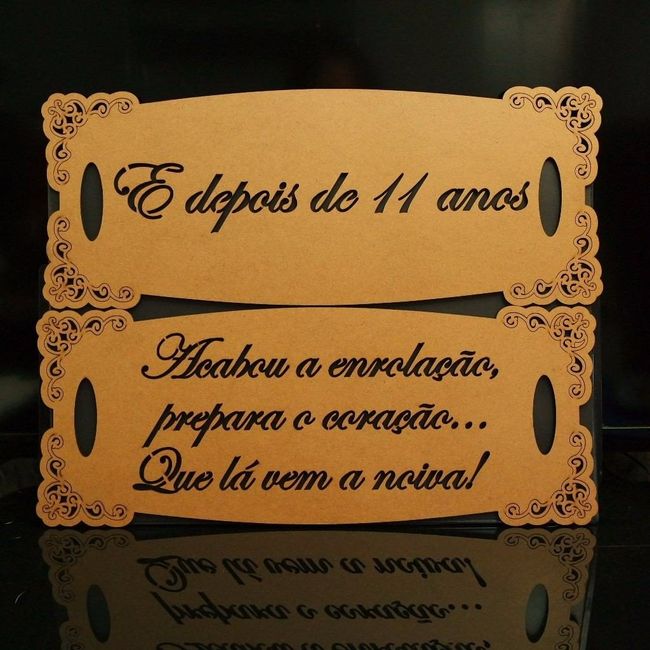 E depois de 11 anos
Acabou a enrolação,
prepara o coração...
Que lá vem a noiva!